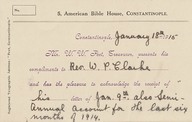 5, American Bible House, CONSTANTINOPLE.
Constantinople, January 18th /15
Mr. W. W. Peet, Treasurer, presents his
compliments to Rev. W. P. Clarke
and has the pleasure to acknowledge the receipt of
his letter of Jan. 9th also Semi-
Annual Account for the last six
months of 1914.